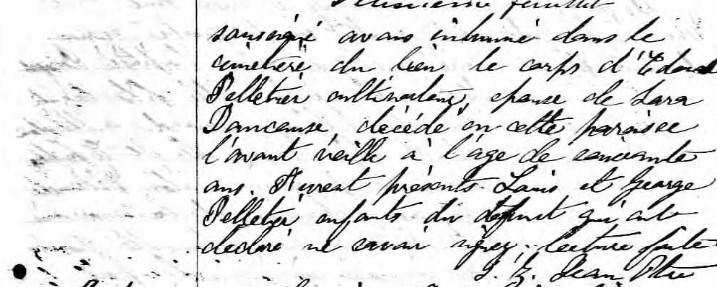 feuillet
sousigné avons inhumé dans le
cimetière du lieu le corps d'Edouard
Pelletier cultivateur, epoux de Sara
Danceuse, decédé en cette paroisse
l'avant veille à l'age de soixante
ans. Furent présents Louis et George
Pelletier enfants du défunt qui ont
declaré ne savoir signer; lecture faite
J. Z. Jean Ptre